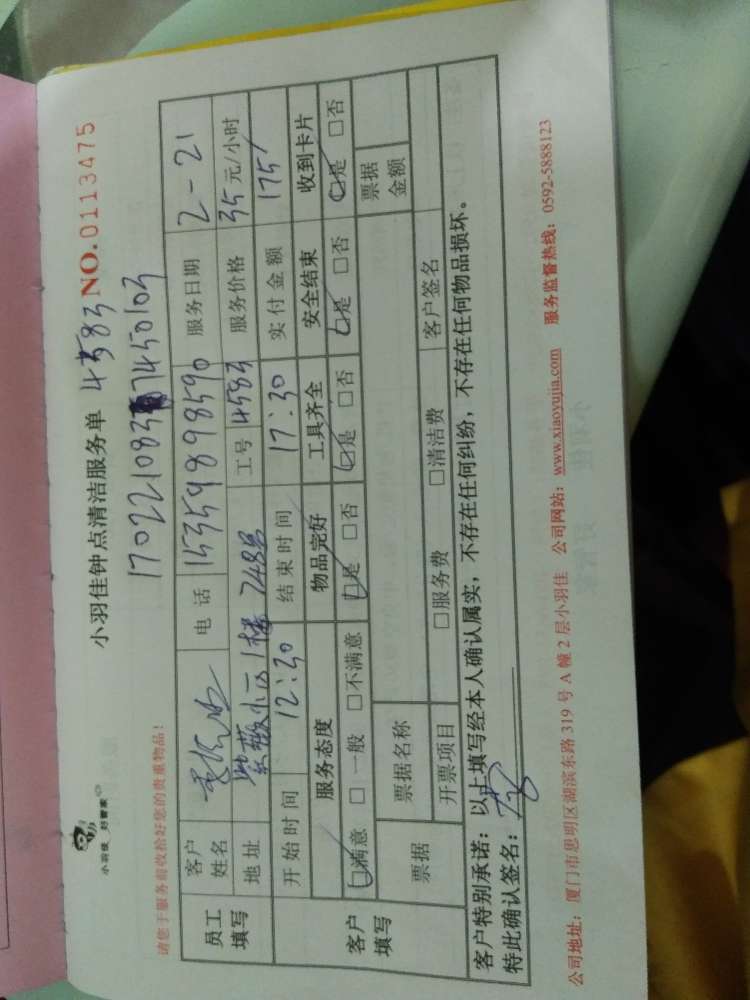 小羽佳 好管家
小羽佳钟点清洁服务单 4583 NO.0113475
请您于服务前收拾好您的贵重物品!
170221083 7450103
员工填写 客户姓名 电话 15359898590 服务日期 2-21
地址 紫薇小区1楼 748号 工号 4583 服务价格 35元/小时
开始时间 12:30 结束时间 17:30 实付金额 175/
客户填写 服务态度 物品完好 工具齐全 安全结束 收到卡片
□满意 □一般 □不满意 □是 □否 □是 □否 □是 □否 □是 □否
票据 票据名称 票据金额
开票项目 □服务费 □清洁费 客户签名
客户特别承诺:以上填写经本人确认属实,不存在任何纠纷,不存在任何物品损坏。
特此确认签名:
公司地址:厦门市思明区湖滨东路319号A幢2层小羽佳 公司网站:www.xiaoyujia.com 服务监督热线:0592-5888123